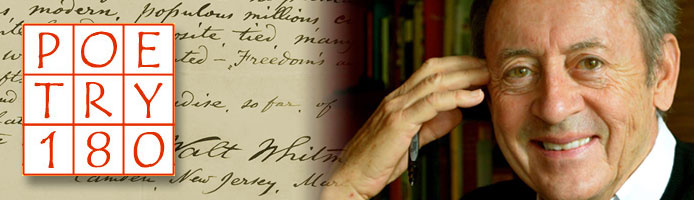 POE
TRY
180
modern, populous millions
posite tied, many
ted—"Freedom's a
dise, so far, of
Walt Whitm
Camden, New Jersey, Mar